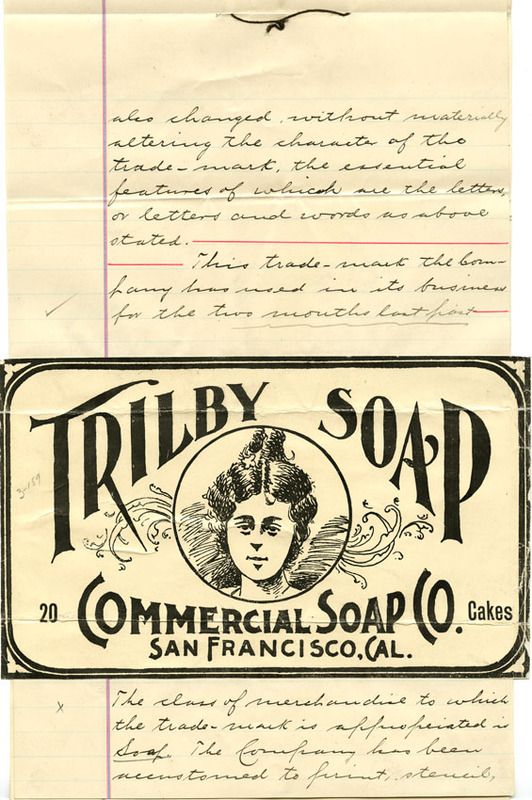 also changed, without materially
altering the character of the
trade-mark, the essential
features of which are the letters,
or letters and words as above
stated.
This trade-mark the Com-
pany has used in its business
for the two months last past
TRILBY SOAP
3-159
20 COMMERCIAL SOAP CO. Cakes
SAN FRANCISCO, CAL.
x The class of merchandise to which
the trade-mark is appropriated is
Soap. The Company has been
accustomed to print, stencil,